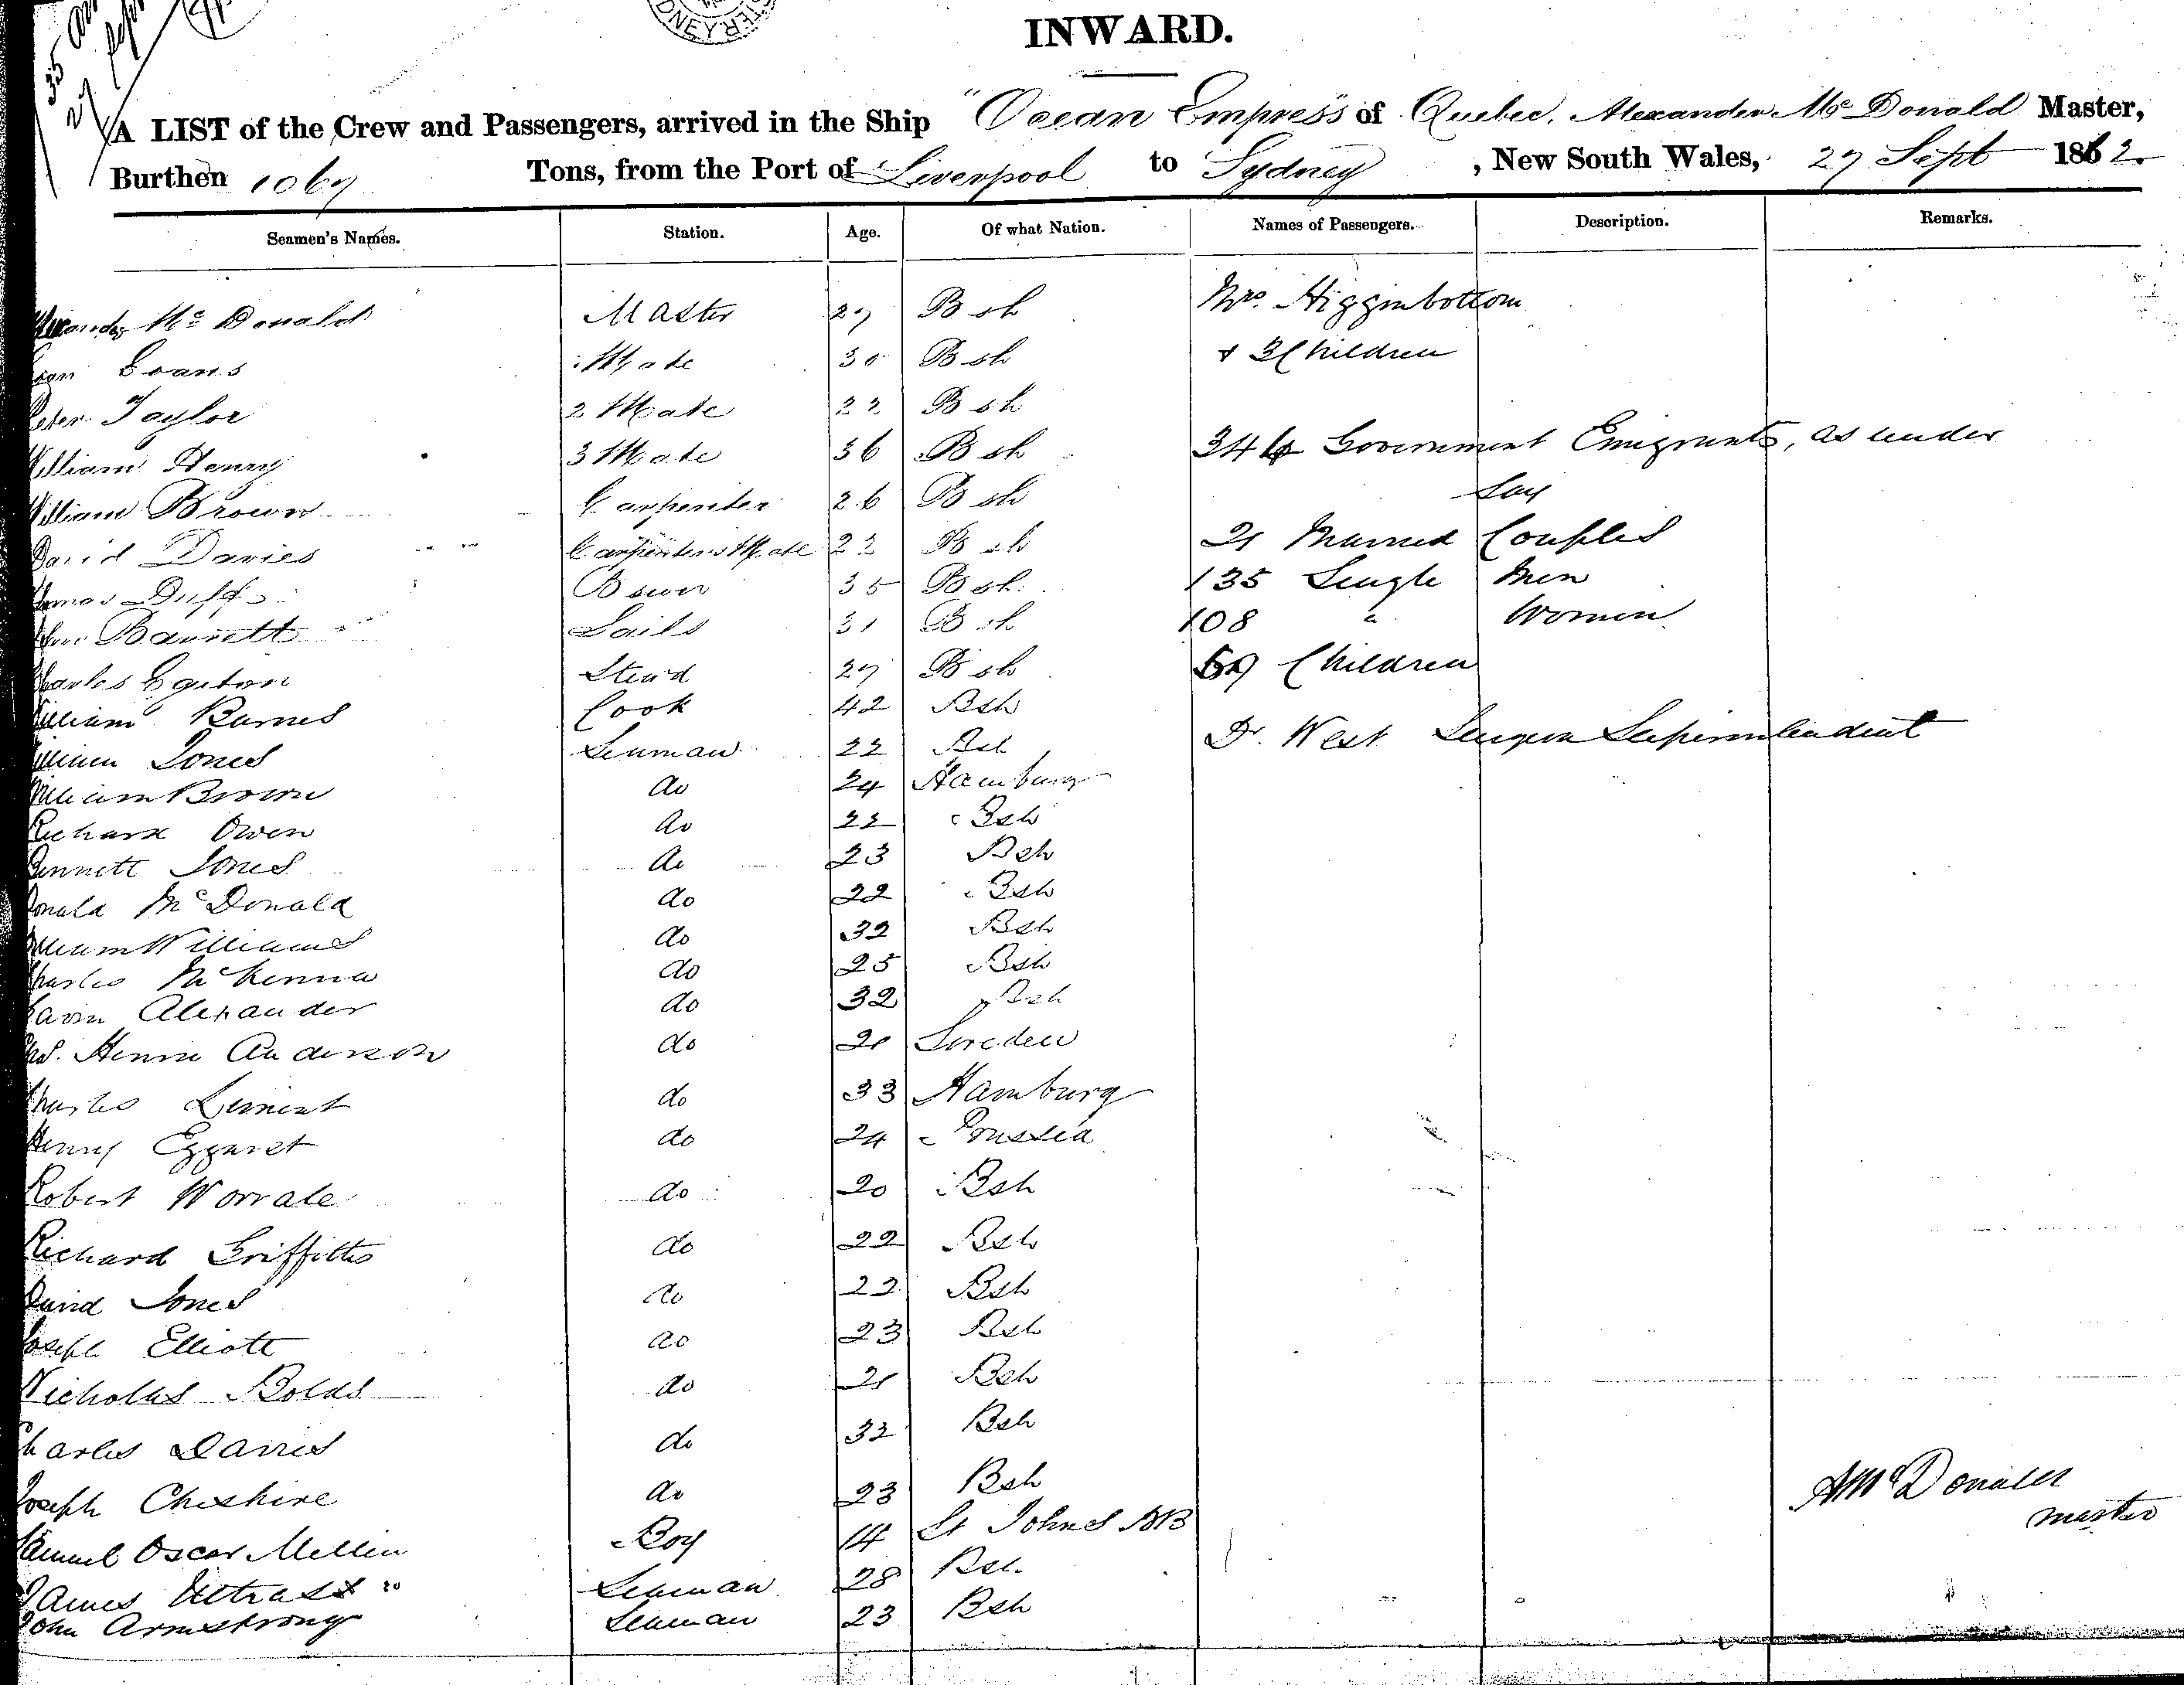 INWARD.
A LIST of the Crew and Passengers, arrived in the Ship "Ocean Empress" of Quebec, Alexander Mc Donald Master,
Burthen 1067 Tons, from the Port of Liverpool to Sydney, New South Wales, 27 Sept 1862
Seamen's Names. Station. Age. Of what Nation. Names of Passengers. Description. Remarks.
Alexander Mc Donald Master 27 Bsh Mrs. Higginbottom
Evans Mate 30 Bsh & 3 Children
Peter Taylor 2 Mate 22 Bsh
William Henry 3 Mate 36 Bsh 346 Government Emigrants, as under
William Brown Carpenter 26 Bsh Say
David Davies Carpenters Mate 22 Bsh 21 Married Couples
Thomas Duff Bswn 35 Bsh 135 Single Men
Barrett Sails 31 Bsh 108 " Women
Charles Egerton Stewd 27 Bsh Children
William Barnes Cook 42 Bsh
William Jones Seaman 22 Bsh Dr. West Surgeon Superintendent
William Brown do 24 Hamburg
Richard Owen do 22 Bsh
Bennett Jones do 23 Bsh
Donald McDonald do 22 Bsh
William Williams do 32 Bsh
Charles McKenna do 25 Bsh
Alexander do 32 Bsh
Chas. Henrie Anderson do 21 Sweden
Charles do 33 Hamburg
Henry Eggaret do 24 Prussia
Robert Worrale do 20 Bsh
Richard Griffiths do 22 Bsh
David Jones do 22 Bsh
Joseph Elliott do 23 Bsh
Nicholas Bolds do 21 Bsh
Charles Davies do 32 Bsh
Joseph Cheshire do 23 Bsh
A McDonald
master
Samuel Oscar Mellin Boy 14 St Johns NB
James Seaman 28 Bsh
John Armstrong Seaman 23 Bsh